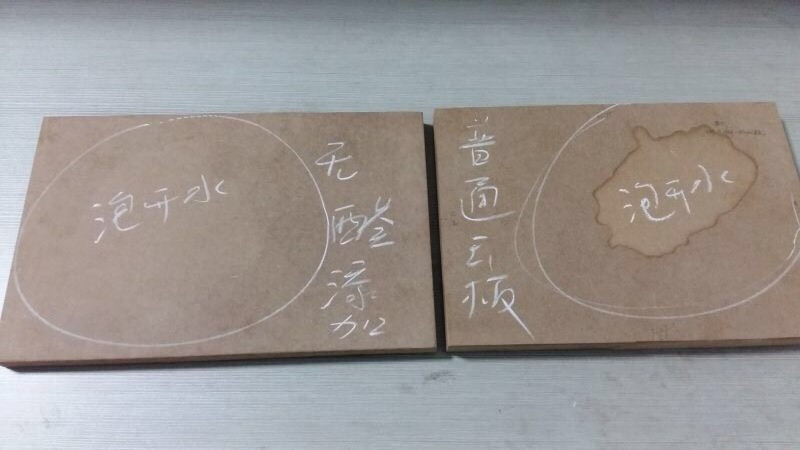 泡开水
无醛添加
普通E1板
泡开水